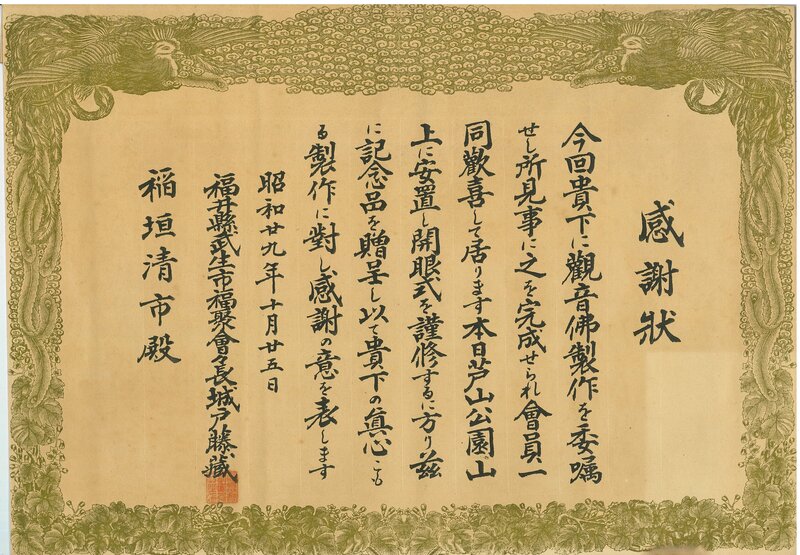 感謝狀
今回貴下に觀音佛製作を委嘱
せし所見事に之を完成せられ會員一
同歡喜して居ります本日芦山公園山
上に安置し開眼式を謹修するに方り茲
に記念品を贈呈し以て貴下の眞心こも
る製作に對し感謝の意を表します
昭和廿九年十月廿五日
福井縣武生市福聚會々長城戸藤藏
稲垣清市殿